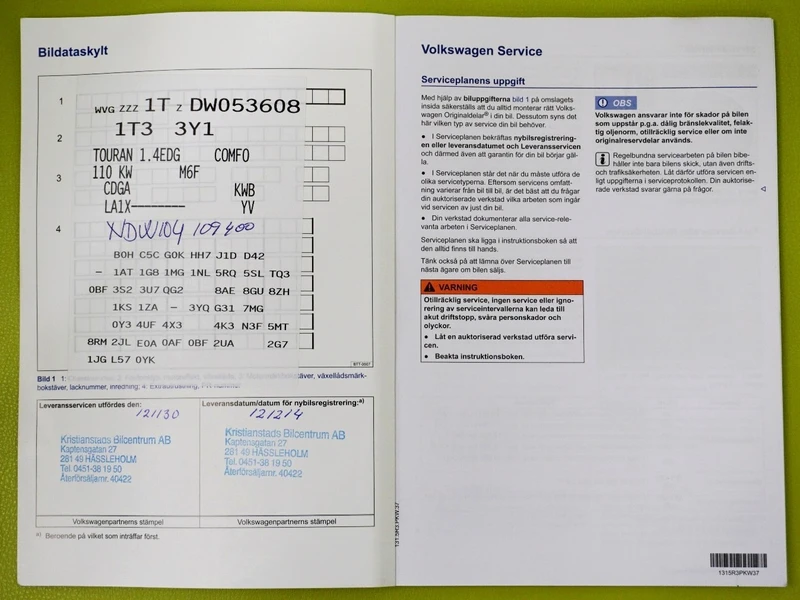 Bildataskylt
1
WVG ZZZ 1T Z DW053608
2
1T3 3Y1
TOURAN 1.4EDG COMFO
3
110 KW M6F
CDGA KWB
LA1X--------- YV
4
NDW104 109400
B0H C5C G0K HH7 J1D D42
– 1AT 1G8 1MG 1NL 5RQ 5SL TQ3
0BF 3S2 3U7 QG2 8AE 8GU 8ZH
1KS 1ZA – 3YQ G31 7MG
0Y3 4UF 4X3 4K3 N3F 5MT
8RM 2JL E0A 0AF 0BF 2UA 2G7
1JG L57 0YK
Bild 1
täver, växellådsmärk-
bokstäver, lacknummer, inredning; 4:
Leveransservicen utfördes den:
121130
Leveransdatum/datum för nybilsregistrering:a)
121214
Kristianstads Bilcentrum AB
Kaptensgatan 27
281 49 HÄSSLEHOLM
Tel. 0451-38 19 50
Återförsäljarnr. 40422
Kristianstads Bilcentrum AB
Kaptensgatan 27
281 49 HÄSSLEHOLM
Tel. 0451-38 19 50
Återförsäljarnr. 40422
Volkswagenpartnerns stämpel
Volkswagenpartnerns stämpel
a) Beroende på vilket som inträffar först.
Volkswagen Service
Serviceplanens uppgift
Med hjälp av biluppgifterna bild 1 på omslagets
insida säkerställs att du alltid monterar rätt Volks-
wagen Originaldelar® i din bil. Dessutom syns det
här vilken typ av service din bil behöver.
● I Serviceplanen bekräftas nybilsregistrering-
en eller leveransdatumet och Leveransservicen
och därmed även att garantin för din bil börjar gäl-
la.
● I Serviceplanen står det när du måste utföra de
olika servicetyperna. Eftersom servicens omfatt-
ning varierar från bil till bil, är det bäst att du frågar
din auktoriserade verkstad vilka arbeten som ingår
vid servicen av just din bil.
● Din verkstad dokumenterar alla service-rele-
vanta arbeten i Serviceplanen.
Serviceplanen ska ligga i instruktionsboken så att
den alltid finns till hands.
Tänk också på att lämna över Serviceplanen till
nästa ägare om bilen säljs.
VARNING
Otillräcklig service, ingen service eller igno-
rering av serviceintervallerna kan leda till
akut driftstopp, svåra personskador och
olyckor.
● Låt en auktoriserad verkstad utföra servi-
cen.
● Beakta instruktionsboken.
OBS
Volkswagen ansvarar inte för skador på bilen
som uppstår p.g.a. dålig bränslekvalitet, felak-
tig oljenorm, otillräcklig service eller om inte
originalreservdelar används.
Regelbundna servicearbeten på bilen bibe-
håller inte bara bilens skick, utan även drifts-
och trafiksäkerheten. Låt därför utföra servicen en-
ligt uppgifterna i serviceprotokollen. Din auktorise-
rade verkstad svarar gärna på frågor.
131.5R3.PKW.37
1315R3PKW37